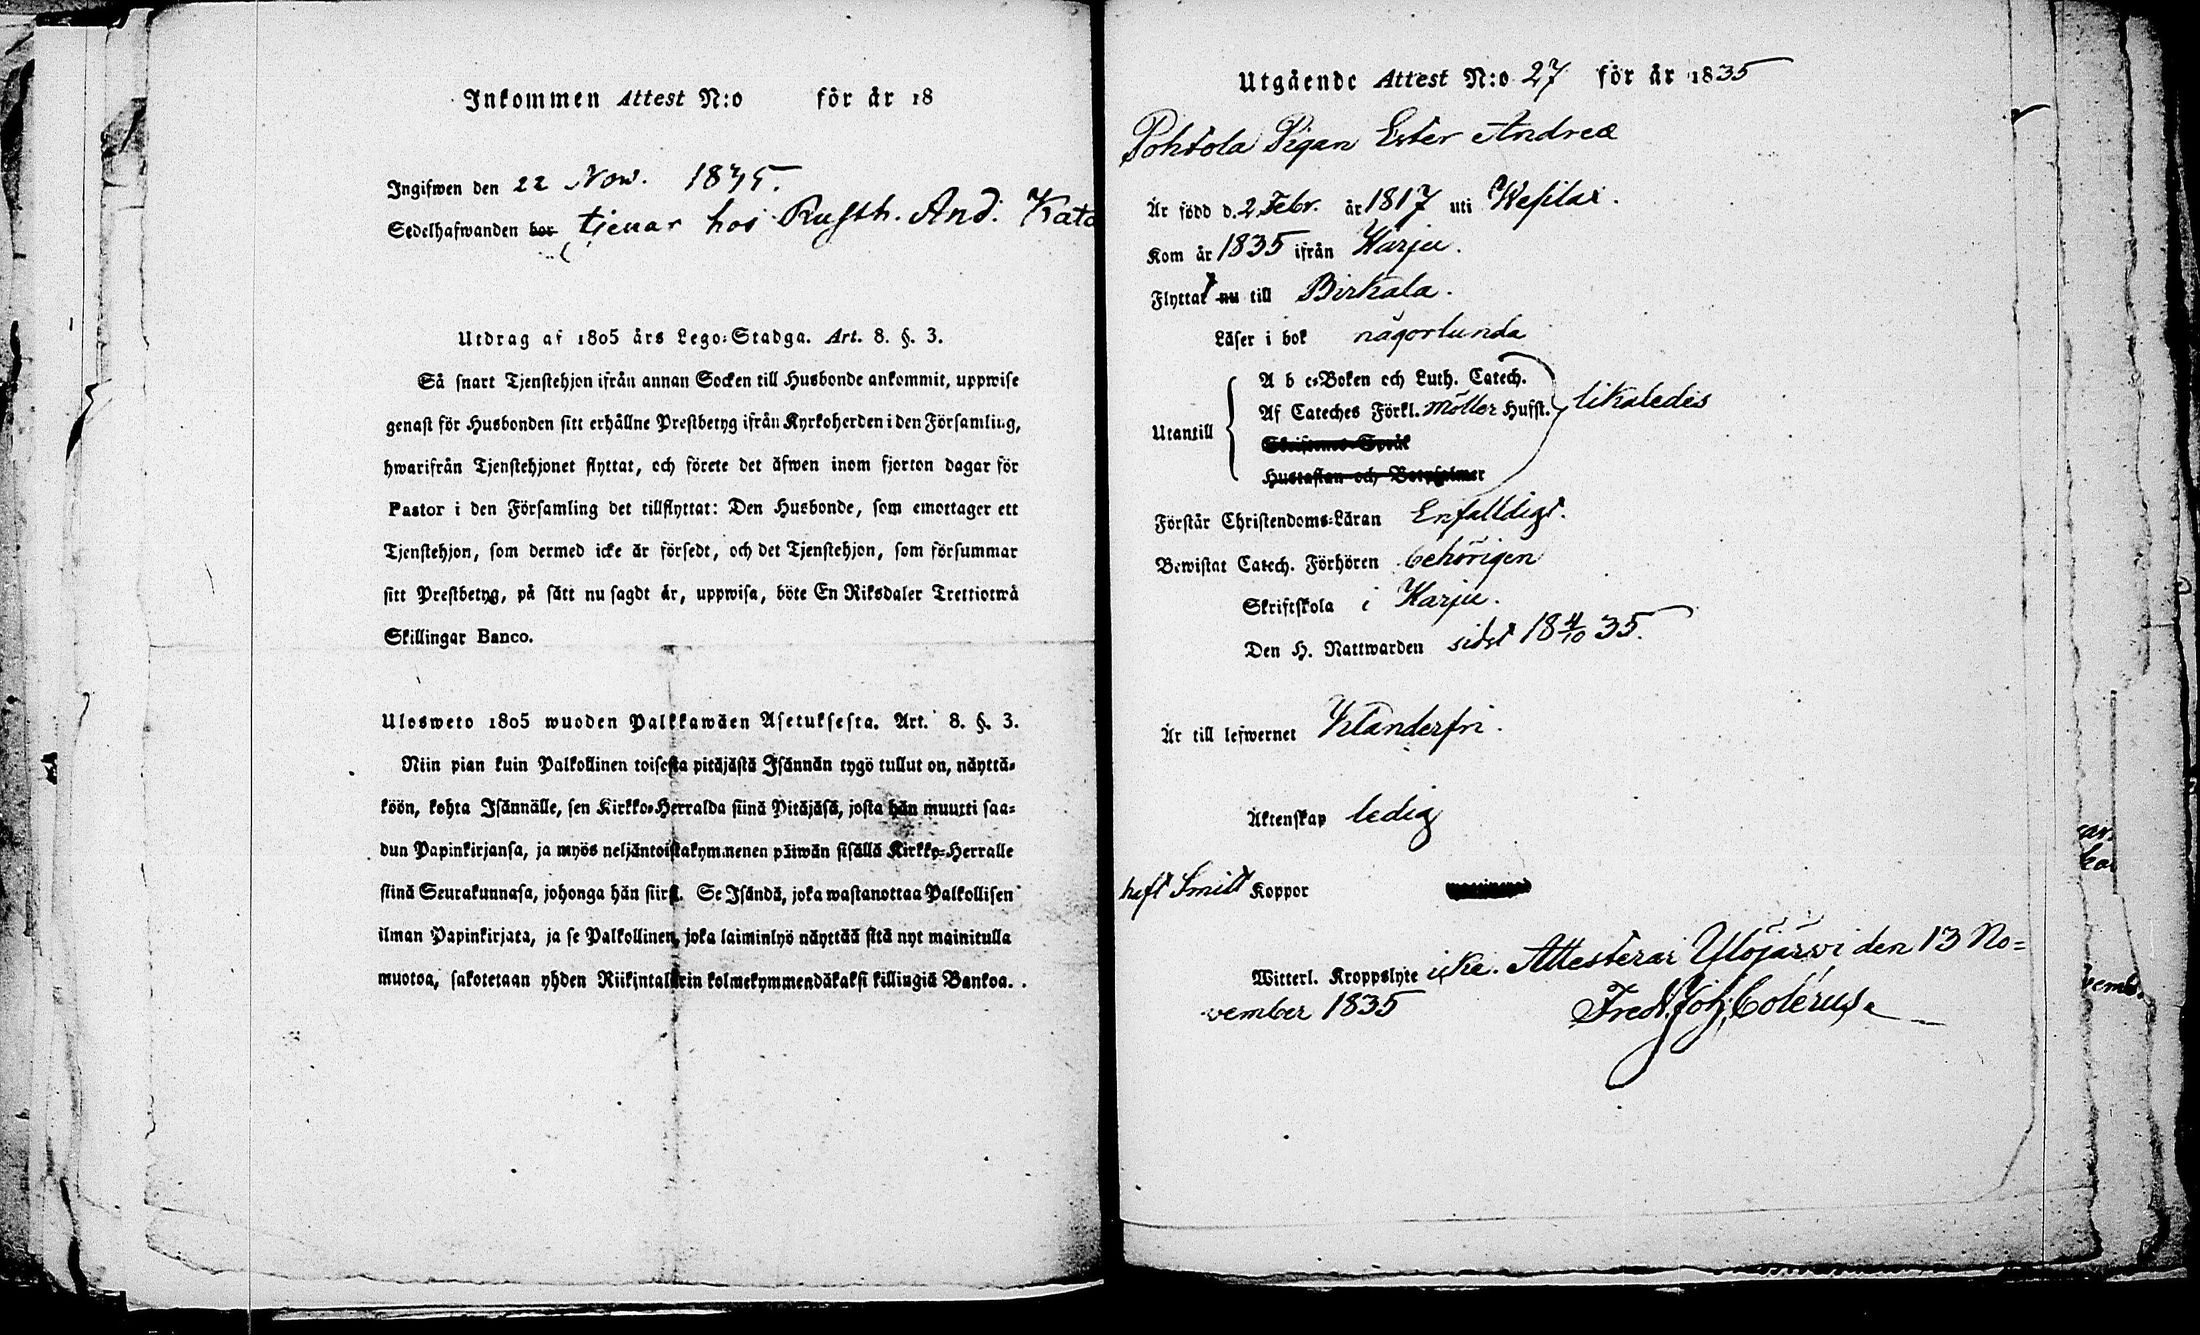 Inkommen Attest N:o för år 18
Ingifwen den 22 Nov. 1835.
Sedelhafwanden bor tjenar hos Rusth. And. Kato
Utdrag af 1805 års Lego-Stadga. Art. 8. §. 3.
Så snart Tjenstehjon ifrån annan Socken till Husbonde ankommit, uppwise
genast för Husbonden sitt erhållne Prestbetyg ifrån Kyrkoherden i den Församling,
hwarifrån Tjenstehjonet flyttat, och förete det äfwen inom fjorton dagar för
Pastor i den Församling det tillflyttat: Den Husbonde, som emottager ett
Tjenstehjon, som dermed icke är försedt, och det Tjenstehjon, som försummar
sitt Prestbetyg, på sätt nu sagdt är, uppwisa, böte En Riksdaler Trettiotwå
Skillingar Banco.
Ulosweto 1805 wuoden Palkkawäen Asetuksesta. Art. 8. §. 3.
Niin pian kuin Palkollinen toisesta pitäjästä Isännän tygö tullut on, näyttä-
köön, kohta Isännälle, sen Kirkko-Herralda siinä Pitäjäsä, josta hän muutti saa-
dun Papinkirjansa, ja myös neljäntoistakymmenen päiwän sisällä Kirkko-Herralle
siinä Seurakunnasa, johonga hän siirsi. Se Isändä, joka wastanottaa Palkollisen
ilman Papinkirjata, ja se Palkollinen, joka laiminlyö näyttää sitä nyt mainitulla
muotoa, sakotetaan yhden Riikintalarin kolmekymmendäkaksi killingiä Bankoa.
Utgående Attest N:o 27 för år 1835
Pohtola Pigan Ester Andreæ
Är född d. 2 Febr. år 1817 uti Wesilax.
Kom år 1835 ifrån Harju.
Flyttat nu till Birkala.
Läser i bok någorlunda
Utantill
A b c-Boken och Luth. Catech.
Af Cateches Förkl. Möller Husft. likaledes
Skriftenes Språk
Hustaflan och Botpsalmer
Förstår Christendoms-Läran Enfalldigt.
Bewistat Catech. Förhören behörigen
Skriftskola i Harju.
Den H. Nattwarden sidst 18 4/10 35.
Är till lefwernet Klanderfri.
Äktenskap ledig
haft Smitt Koppor
Witterl. Kroppslyte icke. Attesterar Ylöjärvi den 13 No=
vember 1835 Fredr. Joh. Colérus.